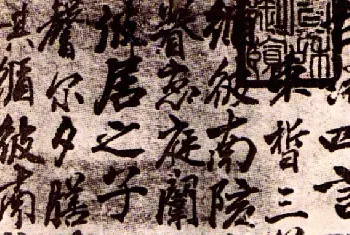 四言
束皙三
循彼南陔
眷恋庭闈
彼居之子
馨尔夕膳
其循彼南